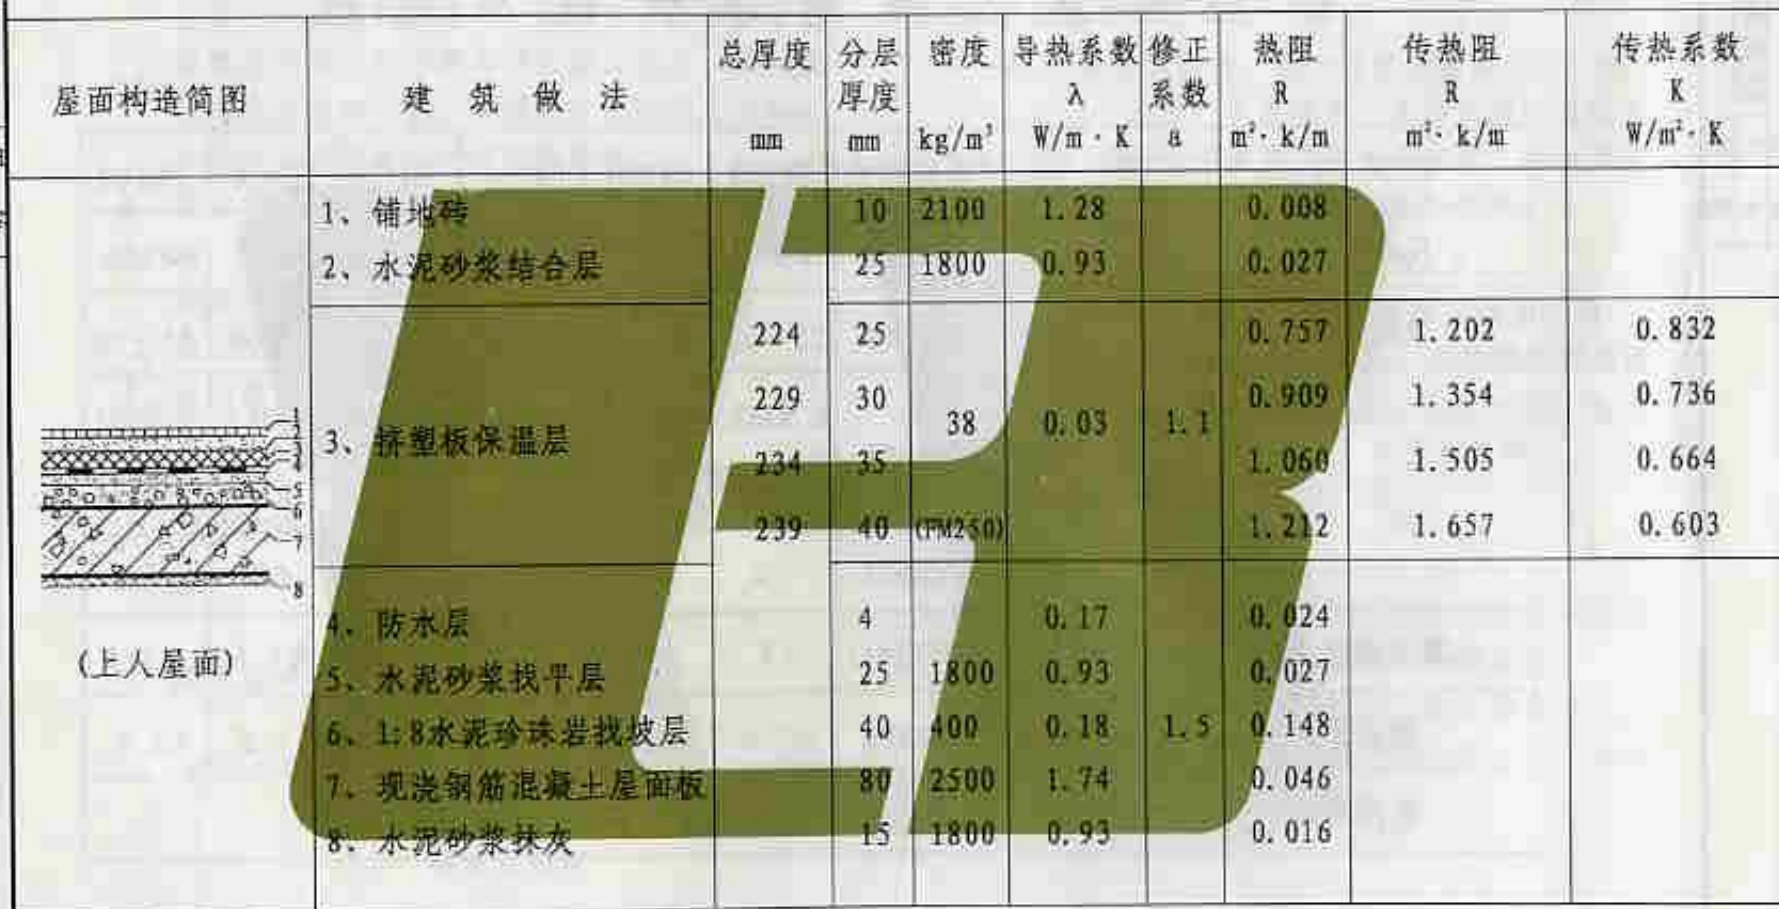 屋面构造简图 建 筑 做 法 总厚度 mm 分层厚度 mm 密度 kg/m³ 导热系数 λ W/m·K 修正系数 a 热阻 R m²·k/m 传热阻 R m²·k/m 传热系数 K W/m²·K
1、铺地砖 10 2100 1.28 0.008
2、水泥砂浆结合层 25 1800 0.93 0.027
224 25 0.757 1.202 0.832
229 30 0.909 1.354 0.736
3、挤塑板保温层 38 0.03 1.1
234 35 1.060 1.505 0.664
239 40 (FM250) 1.212 1.657 0.603
1
5
6
7
8
4、防水层 4 0.17 0.024
(上人屋面)
5、水泥砂浆找平层 25 1800 0.93 0.027
6、1:8水泥珍珠岩找坡层 40 400 0.18 1.5 0.148
7、现浇钢筋混凝土屋面板 80 2500 1.74 0.046
8、水泥砂浆抹灰 15 1800 0.93 0.016